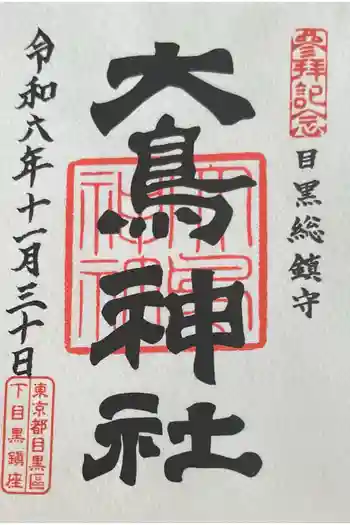 参拝記念
目黒総鎮守
大鳥神社
大鳥神社
令和六年十一月三十日
東京都目黒區
下目黒鎮座